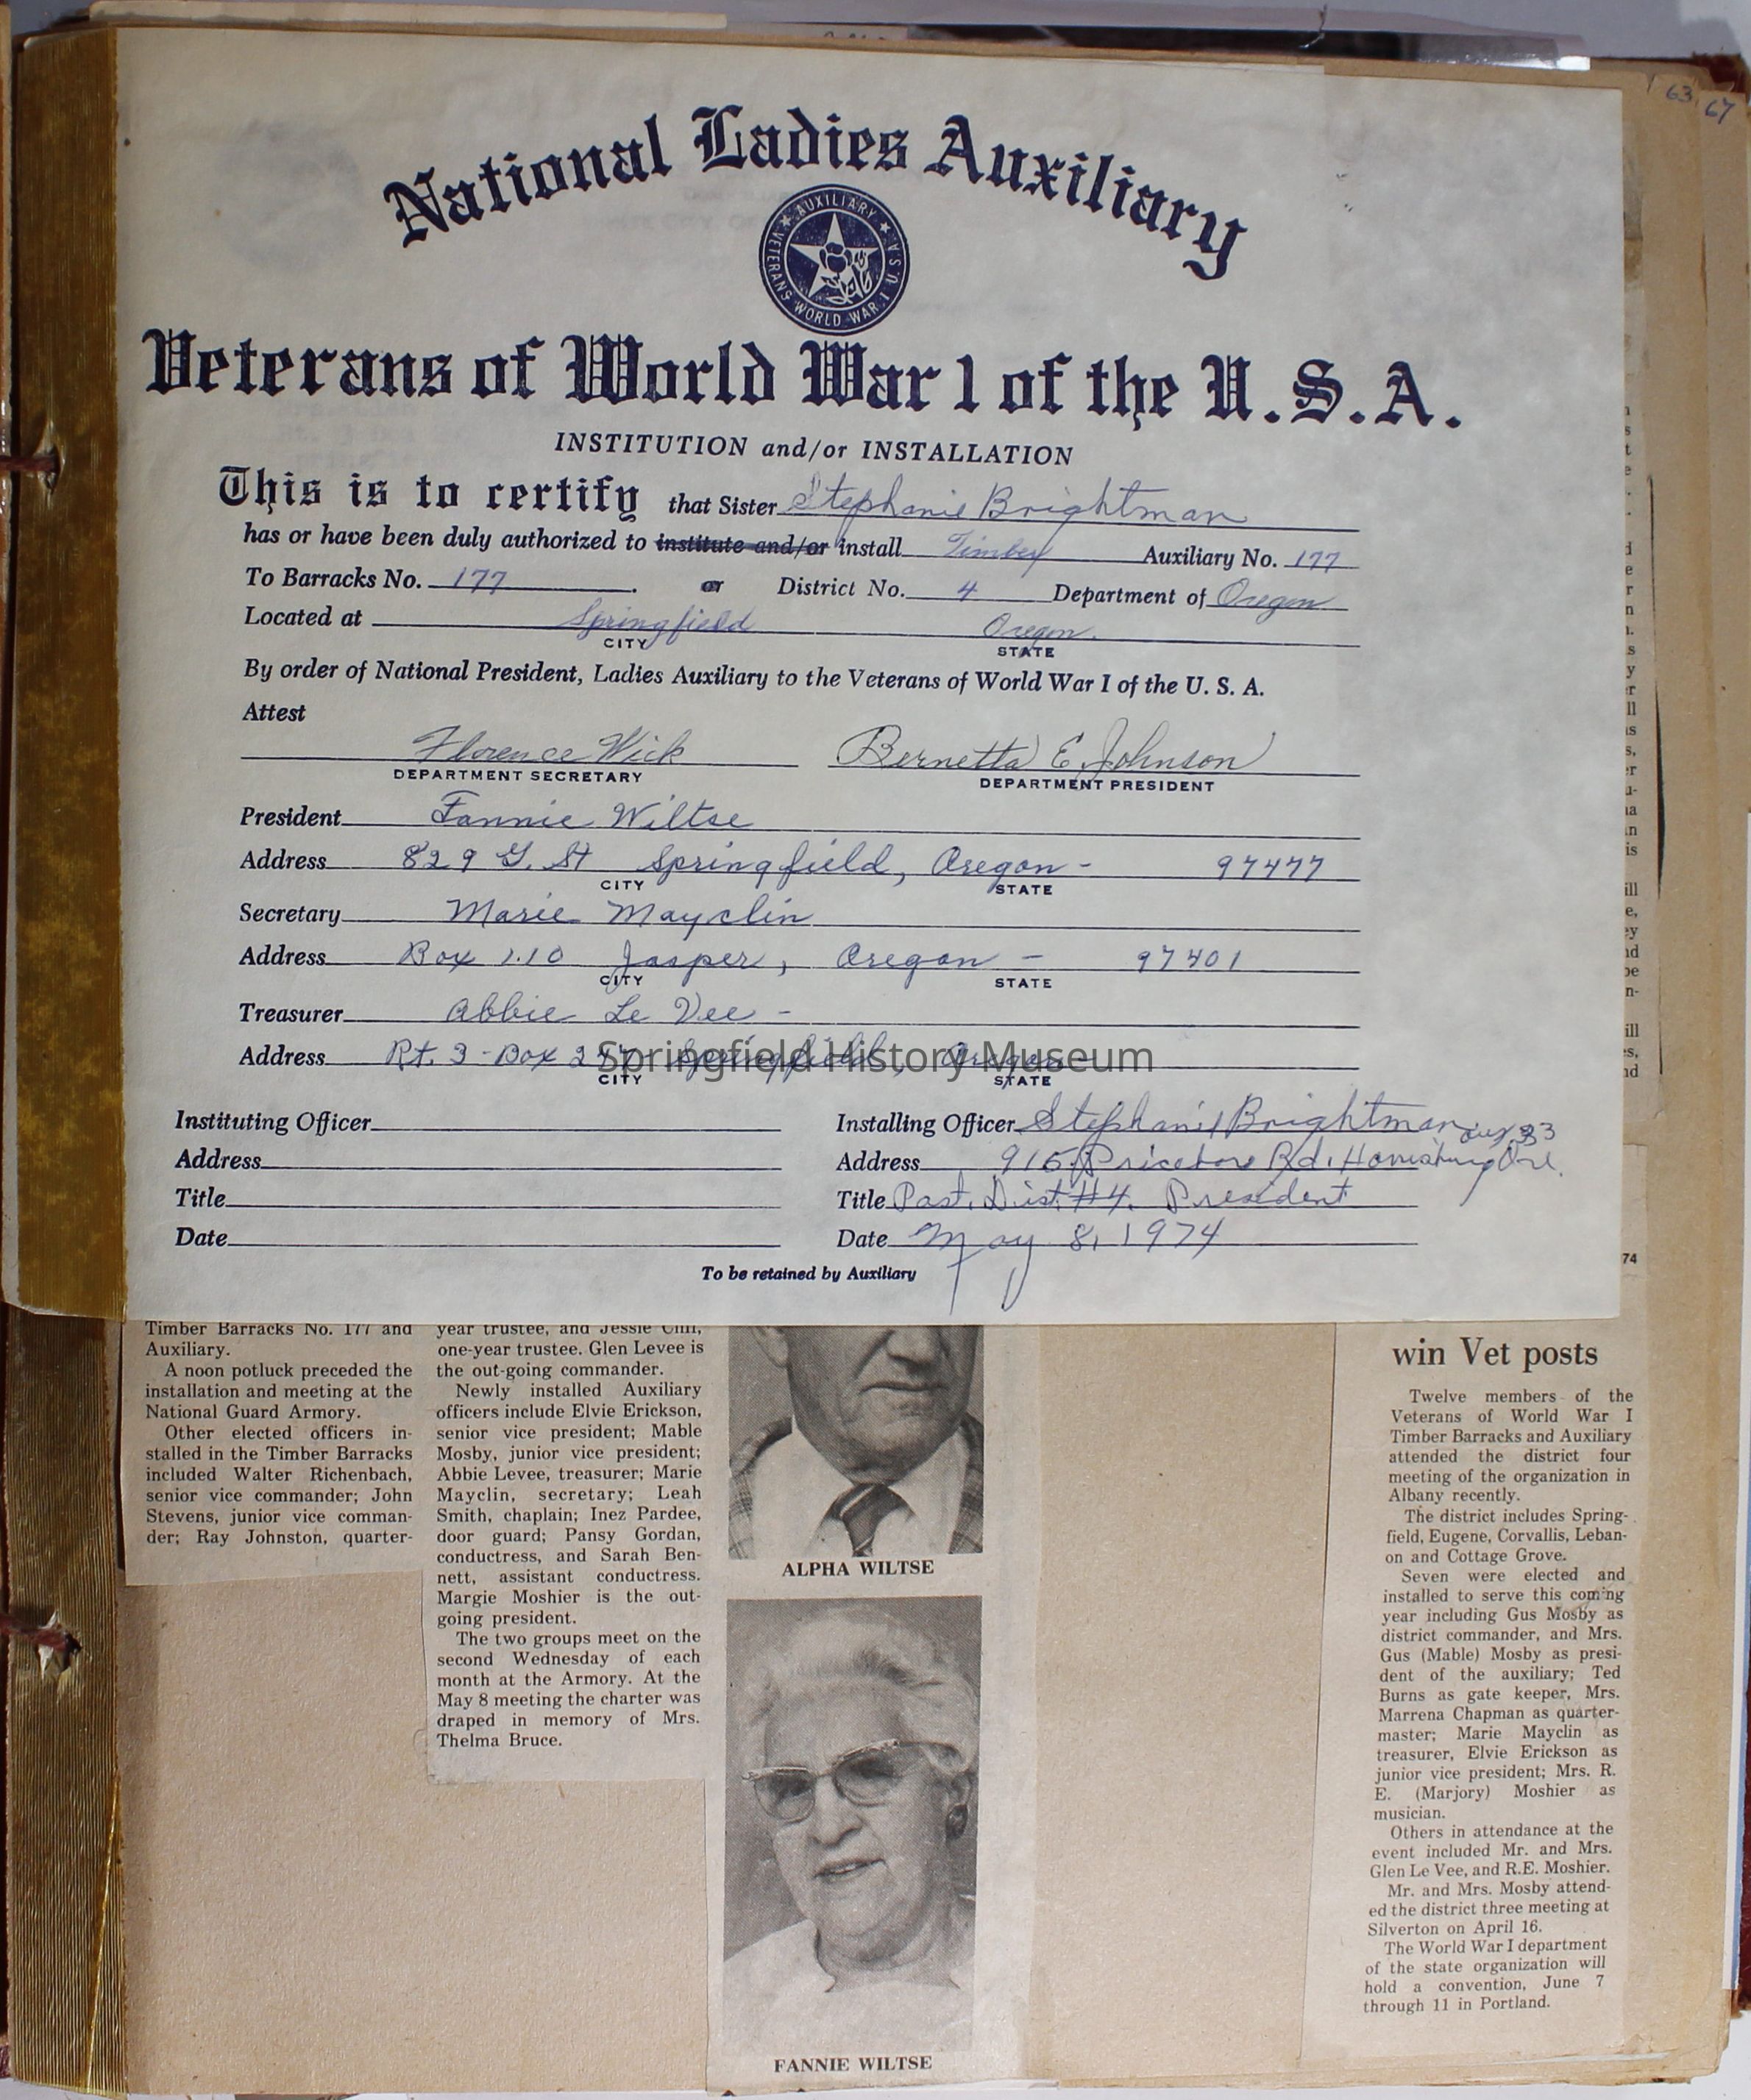 63
67
National Ladies Auxiliary
★ AUXILIARY ★ VETERANS WORLD WAR I U.S.A.
Veterans of World War I of the U.S.A.
INSTITUTION and/or INSTALLATION
This is to certify that Sister Stephanie Brightman
has or have been duly authorized to institute and/or install Timber Auxiliary No. 177
To Barracks No. 177 . or District No. 4 Department of Oregon
Located at Springfield Oregon.
CITY STATE
By order of National President, Ladies Auxiliary to the Veterans of World War I of the U. S. A.
Attest
Florence Wick Bernetta E. Johnson
DEPARTMENT SECRETARY DEPARTMENT PRESIDENT
President Fannie Wiltse
Address 829 G. St Springfield, Oregon - 97477
CITY STATE
Secretary Marie Mayclin
Address Box 110 Jasper, Oregon - 97401
CITY STATE
Treasurer Abbie Le Vee -
Address Rt. 3 - Box 247 - Springfield, Oregon -
CITY STATE
Springfield History Museum
Instituting Officer
Address
Title
Date
Installing Officer Stephanie Brightman
Address Rd. Ore.
Title Past. Dist. #4. President
Date May 8, 1974
To be retained by Auxiliary
Timber Barracks No. 177 and
Auxiliary.
A noon potluck preceded the
installation and meeting at the
National Guard Armory.
Other elected officers in-
stalled in the Timber Barracks
included Walter Richenbach,
senior vice commander; John
Stevens, junior vice comman-
der; Ray Johnston, quarter-
year trustee, and Jessie
one-year trustee. Glen Levee is
the out-going commander.
Newly installed Auxiliary
officers include Elvie Erickson,
senior vice president; Mable
Mosby, junior vice president;
Abbie Levee, treasurer; Marie
Mayclin, secretary; Leah
Smith, chaplain; Inez Pardee,
door guard; Pansy Gordan,
conductress, and Sarah Ben-
nett, assistant conductress.
Margie Moshier is the out-
going president.
The two groups meet on the
second Wednesday of each
month at the Armory. At the
May 8 meeting the charter was
draped in memory of Mrs.
Thelma Bruce.
ALPHA WILTSE
FANNIE WILTSE
74
win Vet posts
Twelve members of the
Veterans of World War I
Timber Barracks and Auxiliary
attended the district four
meeting of the organization in
Albany recently.
The district includes Spring-
field, Eugene, Corvallis, Leban-
on and Cottage Grove.
Seven were elected and
installed to serve this coming
year including Gus Mosby as
district commander, and Mrs.
Gus (Mable) Mosby as presi-
dent of the auxiliary; Ted
Burns as gate keeper, Mrs.
Marrena Chapman as quarter-
master; Marie Mayclin as
treasurer, Elvie Erickson as
junior vice president; Mrs. R.
E. (Marjory) Moshier as
musician.
Others in attendance at the
event included Mr. and Mrs.
Glen Le Vee, and R.E. Moshier.
Mr. and Mrs. Mosby attend-
ed the district three meeting at
Silverton on April 16.
The World War I department
of the state organization will
hold a convention, June 7
through 11 in Portland.